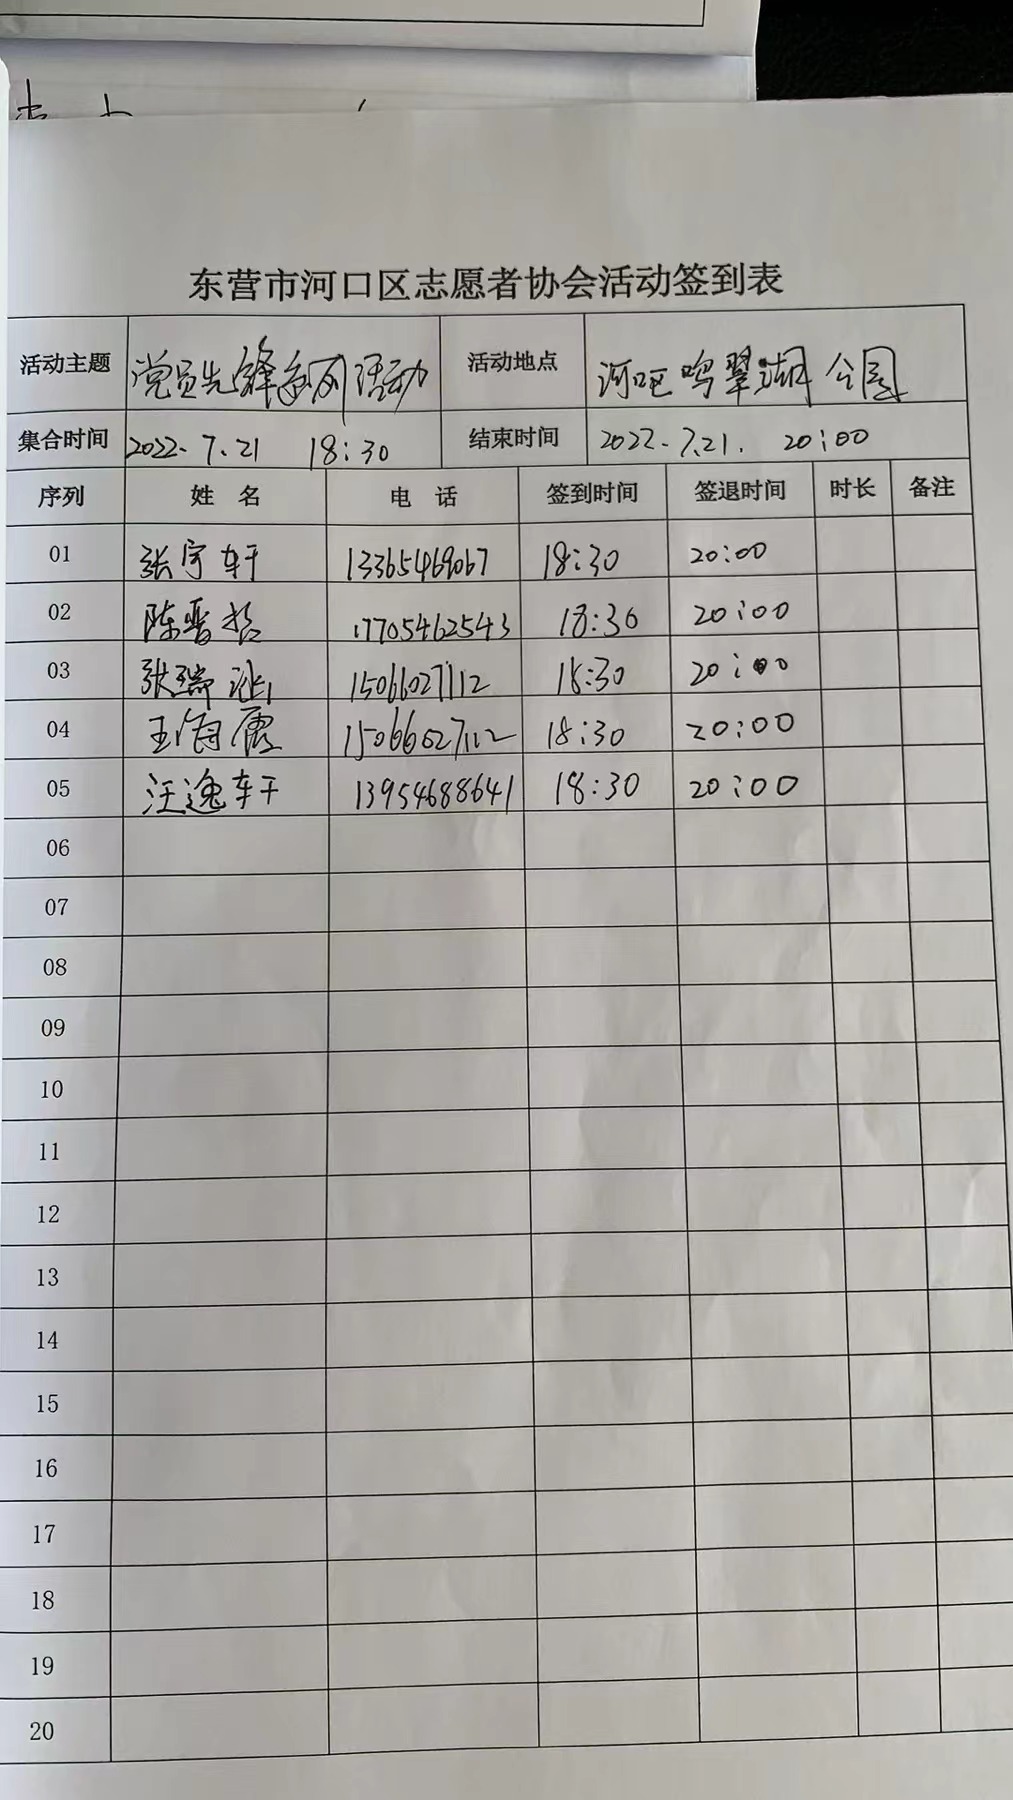 东营市河口区志愿者协会活动签到表
活动主题 党员先锋系列活动 活动地点 河口区鸣翠湖公园
集合时间 2022.7.21 18:30 结束时间 2022.7.21. 20:00
序列 姓 名 电 话 签到时间 签退时间 时长 备注
01 张宇轩 13365469067 18:30 20:00
02 陈晋哲 17705462543 18:30 20:00
03 张瑞 15066027112 18:30 20:00
04 王海霞 15066027112 18:30 20:00
05 汪逸轩 13954688641 18:30 20:00
06
07
08
09
10
11
12
13
14
15
16
17
18
19
20